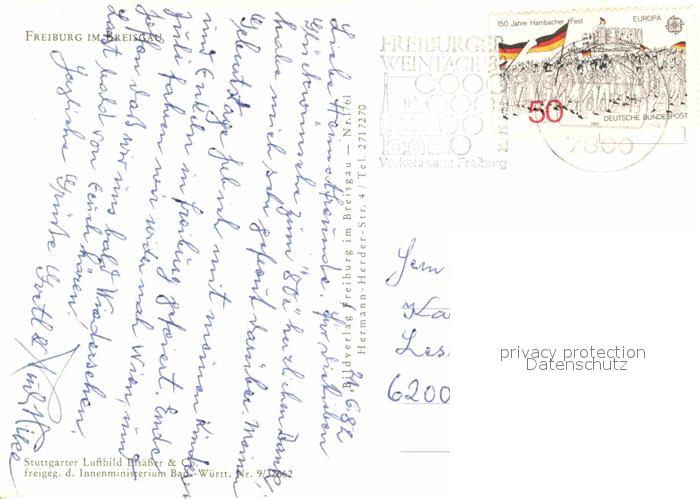 FREIBURG IM BREISGAU
24.6.82
Liebe Heimatfreunde! Für die lieben
Glückwünsche zum "80a" herzlichen Dank,
habe mich sehr gefreut darüber. Meinen
Geburtstag hab ich mit meinen Kindern
und Enkeln in Freiburg gefeiert. Ende
Juli fahren wir wieder nach Wien, und
hoffen daß wir uns bald Wiedersehen.
Laßt bald von Euch hören!
Herzliche Grüße
Stuttgarter Luftbild Elsäßer & Co.
freigeg. d. Innenministerium Bad.-Württ. Nr. 9/32662
Bildverlag Freiburg im Breisgau — Nr. 1761
Hermann-Herder-Str. 4 / Tel. 2717270
FREIBURGER
WEINTAGE '82
Verkehrsamt Freiburg
7800
150 Jahre Hambacher Fest
EUROPA
CEPT
50
DEUTSCHE BUNDESPOST
1982
6200
privacy protection
Datenschutz